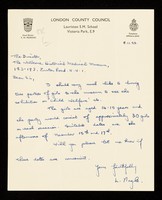 LONDON COUNTY COUNCIL
Lauriston S.M. School
Victoria Park, E.9
The Director,
The Wellcome Historical Medical Museum,
183-193, Euston Road N.W.1
Dear Sir,
I should very much like to bring
two parties of girls to the museum to see the
exhibition on child welfare etc.
The girls are aged 14-15 years and
the party would consist of approximately 30 girls
and would
afternoons of
Will you please let me know if
these dates are convenient.
Yours faithfully,